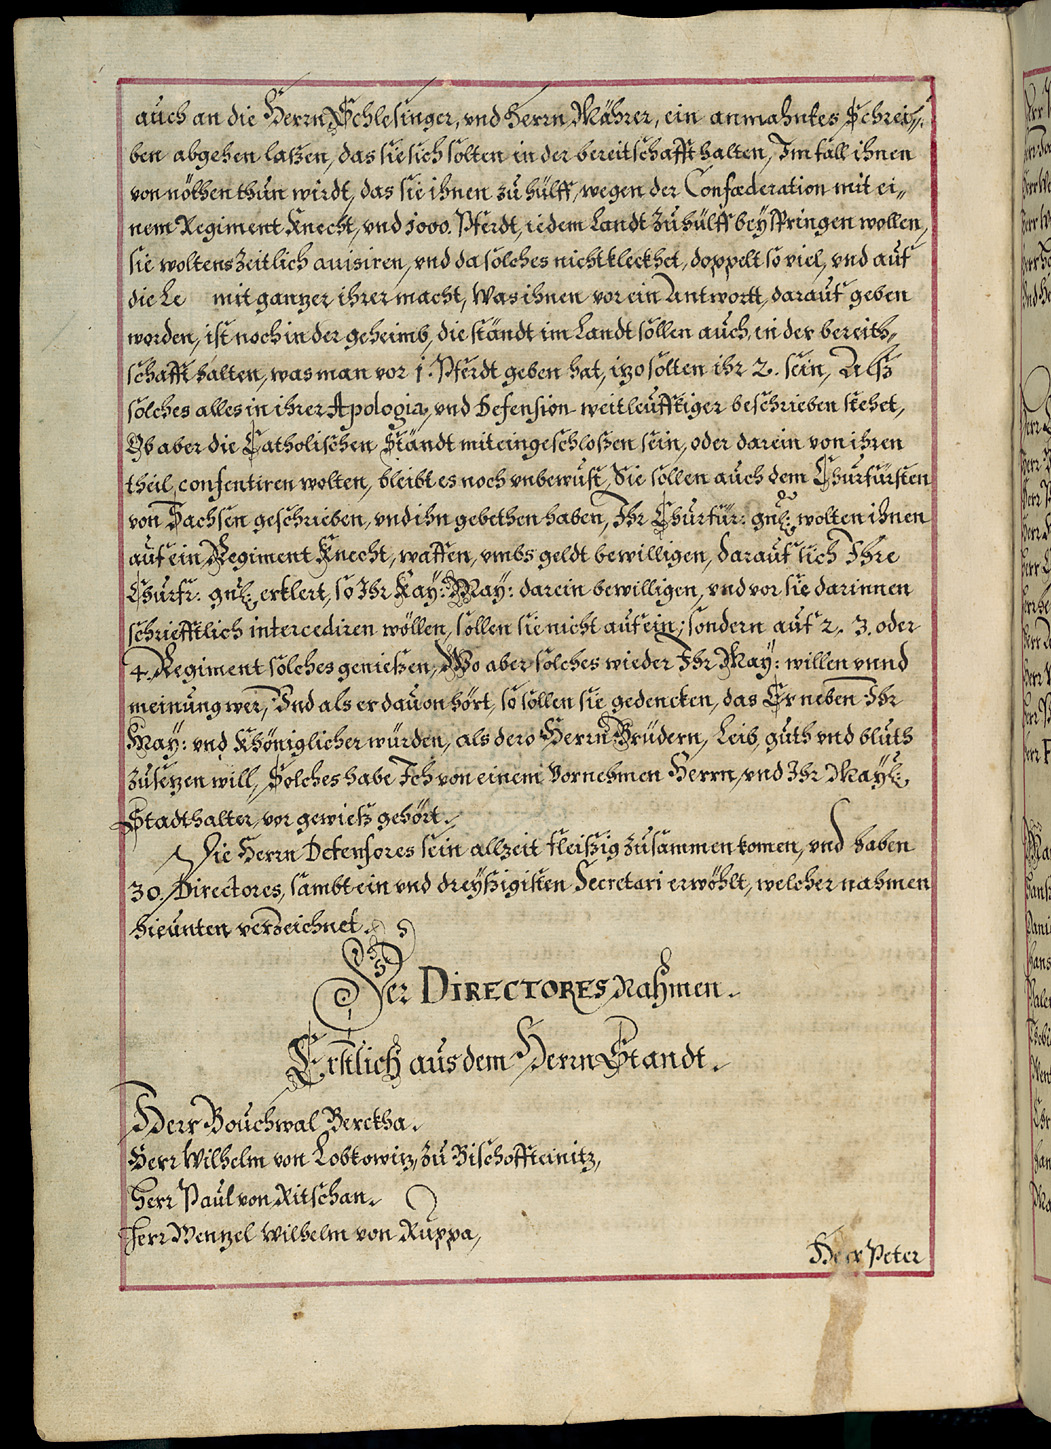 auch an die Herrn Schlesinger, vnd Herrn Mährer, ein anmahntes Schrei„
ben abgehen laßen, das sie sich solten in der bereitschafft halten, Im fall ihnen
von nöthen thun wirdt, das sie ihnen zu hülff, wegen der Confœderation mit ei„
nem Regiment Knecht, vnd 1000. Pferdt, iedem Landt zu hülff beyspringen wollen,
sie woltens zeitlich auisiren, vnd da solches nicht kleckhet, doppelt so viel, vnd auf
die Le mit gantzer ihrer macht, Was ihnen vor ein Antwortt, darauf geben
worden, ist noch in der geheimb, die ständt im Landt sollen auch in der bereith„
schafft halten, was man vor 1. Pferdt geben hat, itzo solten ihr 2. sein, Alß
solches alles in ihrer Apologia, vnd Defension weitleufftiger beschrieben stehet,
Ob aber die Catholischen Ständt mit eingeschloßen sein, oder darein von ihren
theil, consentiren wolten, bleibt es noch vnbewust, Sie sollen auch dem Churfürsten
von Sachsen geschrieben, vnd ihn gebethen haben, Ihr Churfür: gn: wolten ihnen
auf ein Regiment Knecht, waffen, vmbs geldt bewilligen, darauf sich Ihre
Churfr: gn: erklert, so Ihr Kay: May: darein bewilligen, vnd vor sie darinnen
schriefftlich intercediren wöllen, sollen sie nicht auf ein, sondern auf 2. 3. oder
4. Regiment solches genießen, Wo aber solches wieder Ihr May: willen vnnd
meinung wer, Vnd als er dauon hört, so sollen sie gedencken, das Er neben Ihr
May: vnd Khöniglicher würden, als dero Herrn Brüdern, Leib, guth vnd bluth
zusetzen will, Solches habe Ich von einem Vornehmen Herrn, vnd Ihr May:
Stadthalter, vor gewieß gehört.
Die Herrn Defensores sein allzeit fleißig zusammen komen, vnd haben
30. Directores, sambt ein vnd dreyßigisten Secretari erwöhlt, welcher nahmen
hieunten verzeichnet.
Der DIRECTORES Nahmen.
Erstlich aus dem Herrn Standt.
Herr Bouchwal Berckha.
Herr Wilhelm von Lobkowitz, zu Bischoffteinitz,
Herr Paul von Ritschan.
Herr Wentzel Wilhelm von Ruppa,
Herr Peter